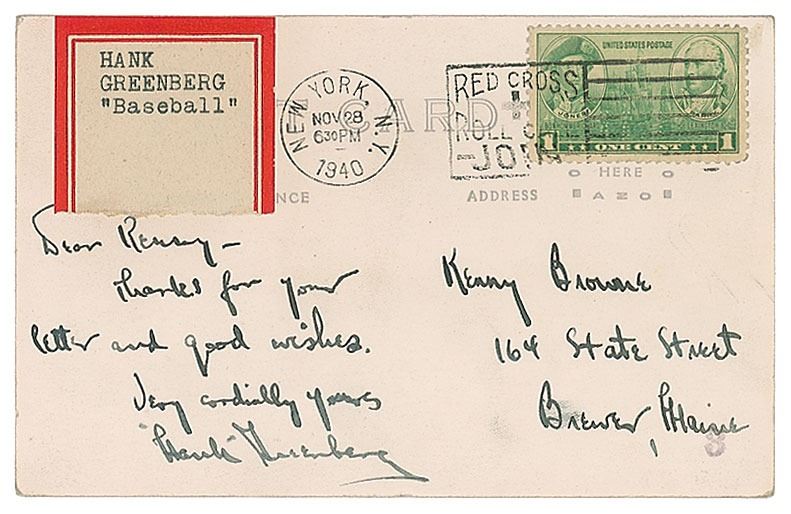 HANK
GREENBERG
"Baseball"
NEW YORK, N.Y.
NOV 28
6 30 PM
1940
RED CROSS
ROLL CALL
JOIN
UNITED STATES POSTAGE
JONES
1 ONE CENT 1
CARD
HERE
ADDRESS
AZO
NCE
Dear Kenny –
Thanks for your
letter and good wishes.
Very cordially yours
"Hank" Greenberg
Kenny Browne
164 State Street
Brewer, Maine
3